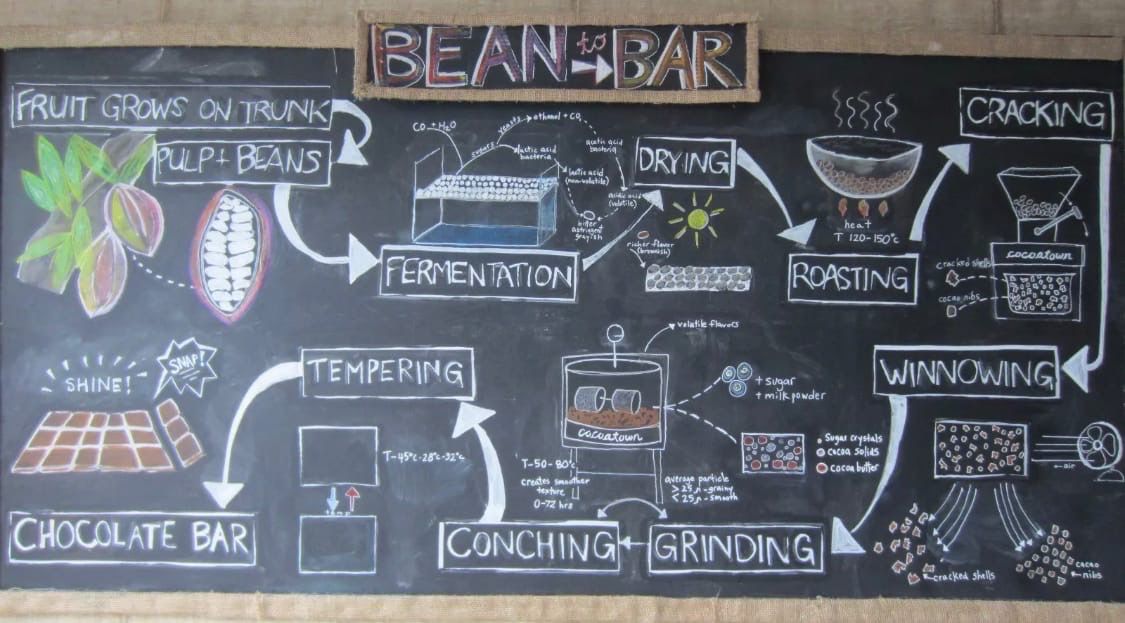 BEAN to BAR
FRUIT GROWS ON TRUNK
PULP + BEANS
FERMENTATION
CO + H₂O
sugars
yeasts
ethanol + CO₂
lactic acid
bacteria
acetic acid
bacteria
lactic acid
(non-volatile)
acidic acid
(volatile)
bitter
astringent
grayish
DRYING
richer flavor
(brownish)
ROASTING
heat
T 120-150°c
CRACKING
cocoatown
cracked shells
cacao nibs
WINNOWING
air
cracked shells
cacao
nibs
GRINDING
volatile flavors
+ sugar
+ milk powder
cocoatown
Sugar crystals
cocoa solids
cocoa butter
average particle
> 25 μ - grainy
< 25 μ - smooth
CONCHING
T-50-80°c
creates smoother
texture
0-72 hrs
TEMPERING
T-45°c-28°c-32°c
CHOCOLATE BAR
SHINE!
SNAP!